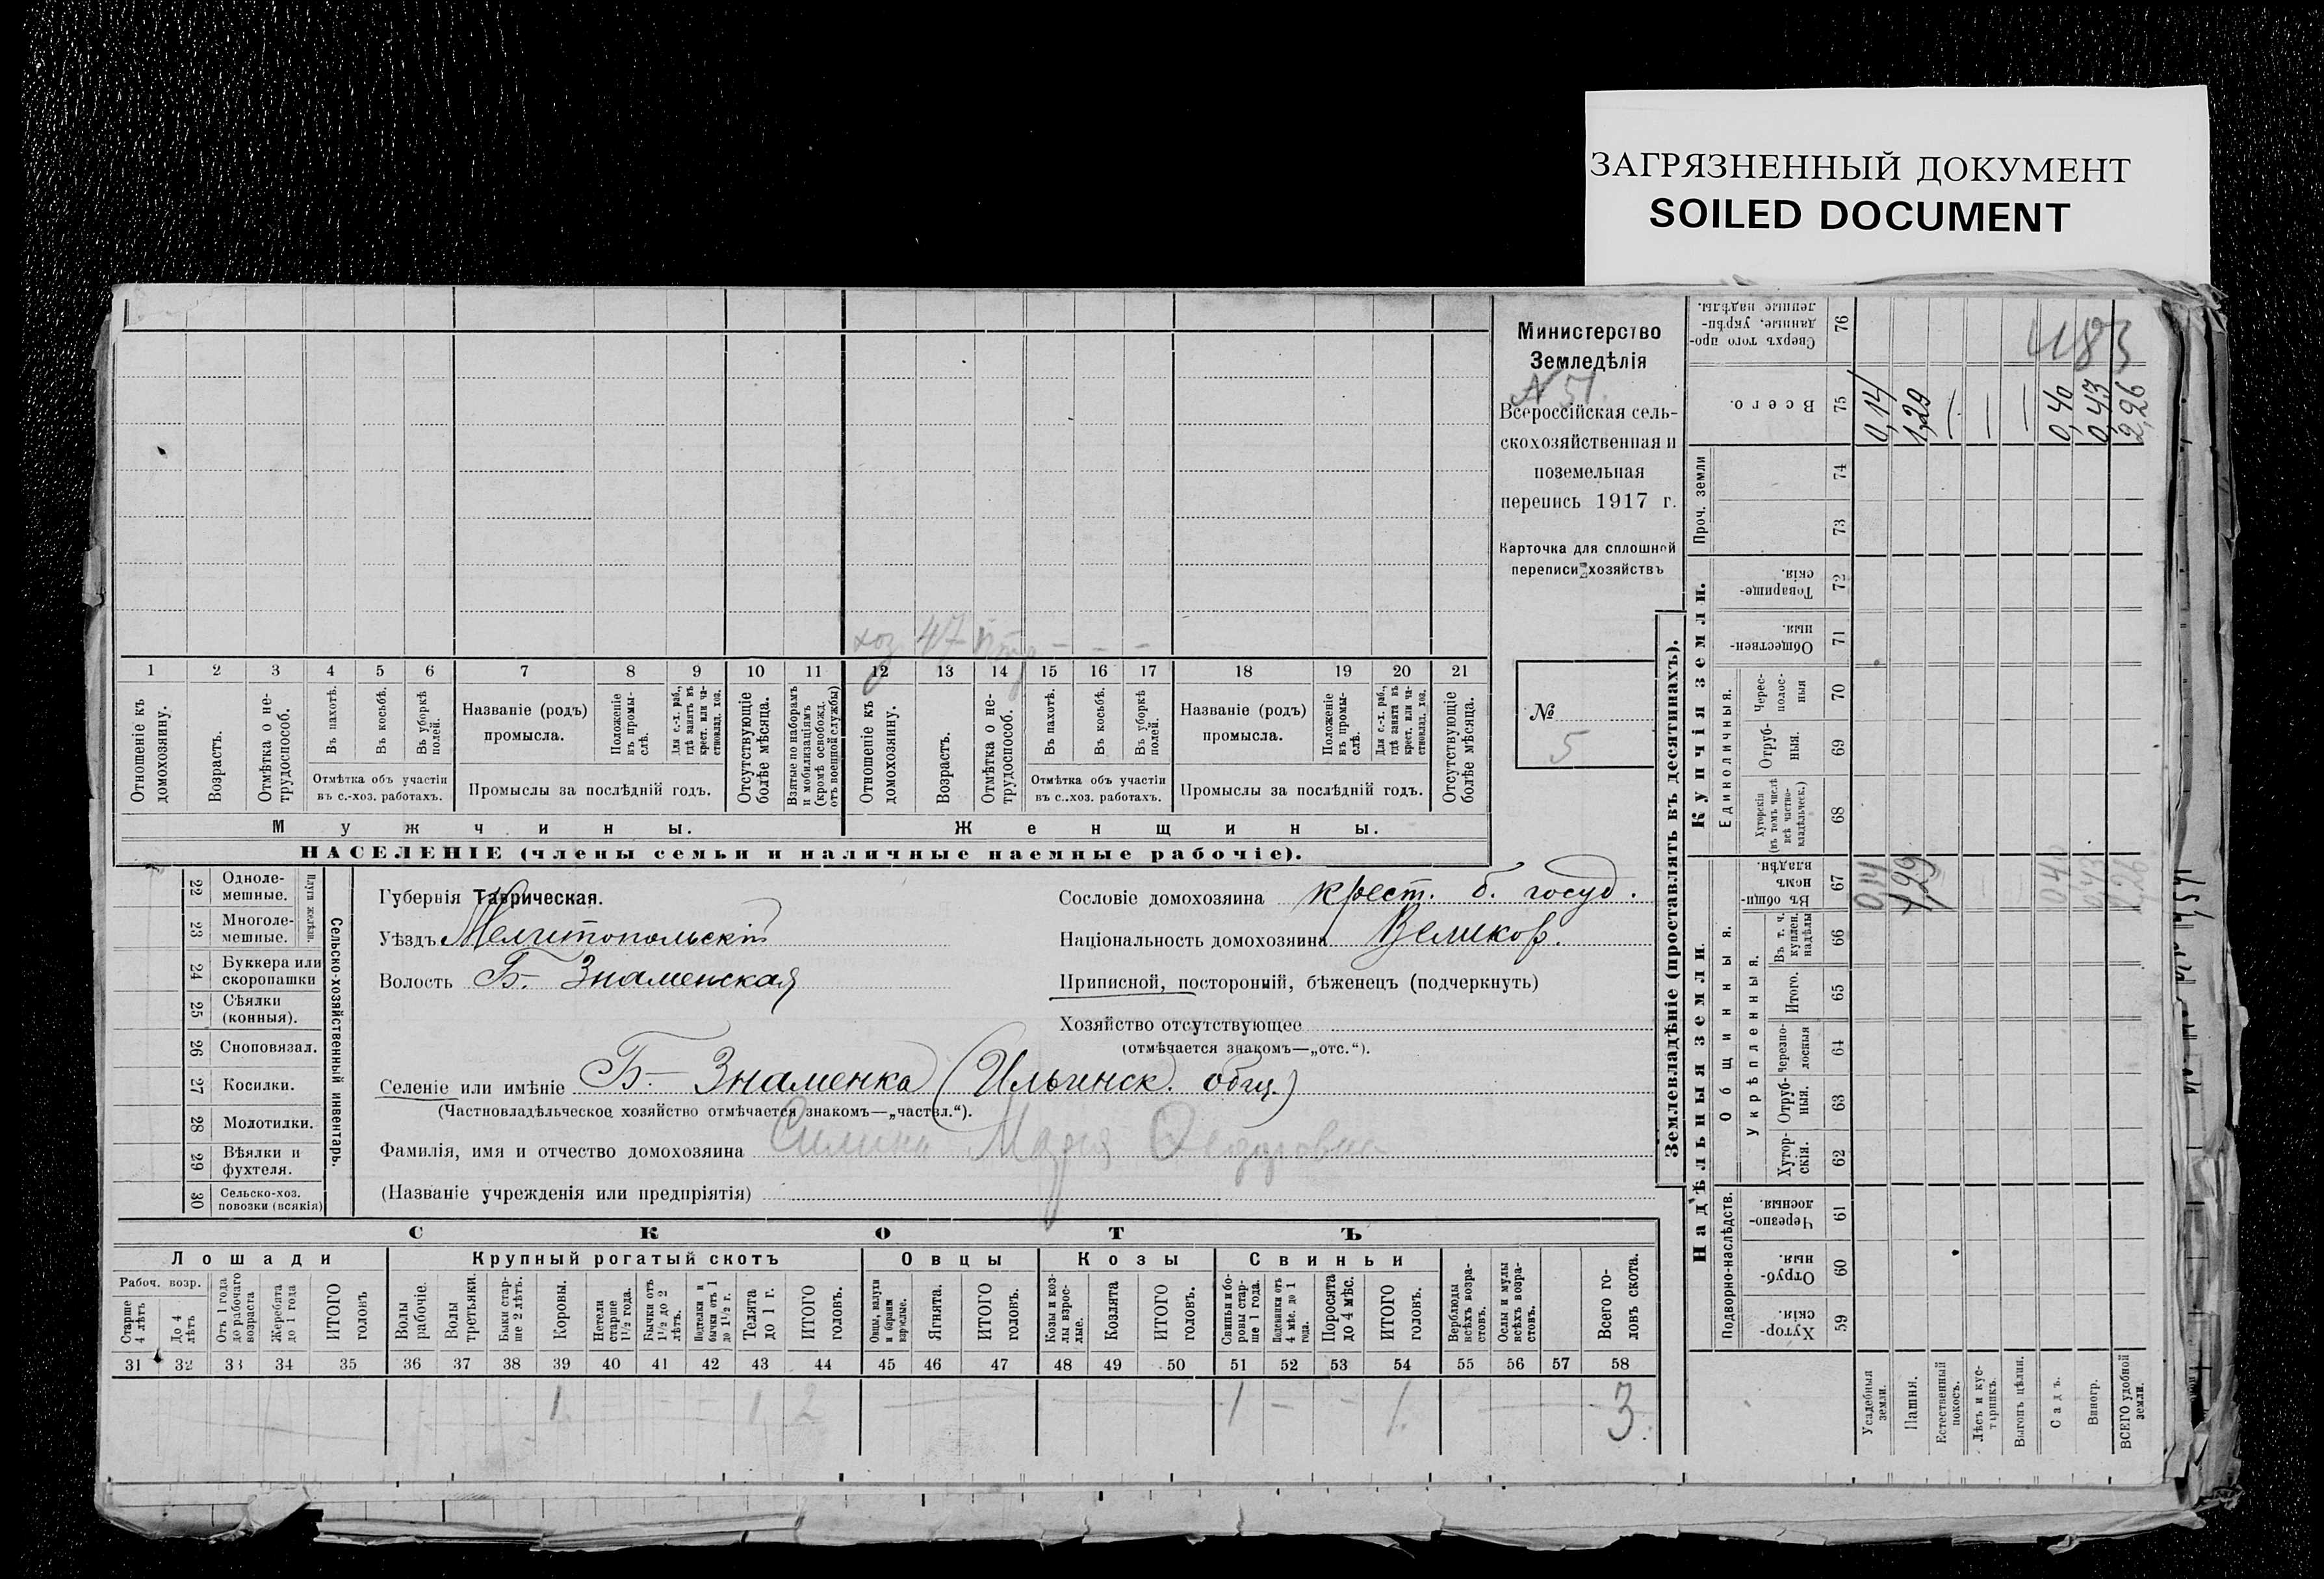 ЗАГРЯЗНЕННЫЙ ДОКУМЕНТ
SOILED DOCUMENT
Министерство
Земледѣлія
N 51.
Всероссійская сель-
скохозяйственная и
поземельная
перепись 1917 г.
Карточка для сплошной
переписи хозяйствъ
№
5
хоз 47 – – –
1 2 3 4 5 6 7 8 9 10 11 12 13 14 15 16 17 18 19 20 21
Отношеніе къ домохозяину.
Возрастъ.
Отмѣтка о не-трудоспособ.
Въ пахотѣ.
Въ косьбѣ.
Въ уборкѣ полей.
Отмѣтка объ участіи въ с.-хоз. работахъ.
Названіе (родъ) промысла.
Положеніе въ промы-слѣ.
Для с.-х. раб., гдѣ занятъ въ крест. или ча-стновлад. хоз.
Промыслы за послѣдній годъ.
Отсутствующіе болѣе мѣсяца.
Взятые по наборамъ и мобилизаціямъ (кромѣ освобожд. отъ военной службы)
Отношеніе къ домохозяину.
Возрастъ.
Отмѣтка о не-трудоспособ.
Въ пахотѣ.
Въ косьбѣ.
Въ уборкѣ полей.
Отмѣтка объ участіи въ с.-хоз. работахъ.
Названіе (родъ) промысла.
Положеніе въ промы-слѣ.
Для с.-х. раб., гдѣ занята въ крест. или ча-стновлад. хоз.
Промыслы за послѣдній годъ.
Отсутствующіе болѣе мѣсяца.
Мужчины.
Женщины.
НАСЕЛЕНІЕ (члены семьи и наличные наемные рабочіе).
22 Одноле-мешные.
23 Многоле-мешные.
Плуги желѣзн.
24 Буккера или скоропашки
25 Сѣялки (конныя).
26 Сноповязал.
27 Косилки.
28 Молотилки.
29 Вѣялки и фухтеля.
30 Сельско-хоз. повозки (всякія)
Сельско-хозяйственный инвентарь.
Губернія Таврическая.
Уѣздъ Мелитопольскій
Волость Б. Знаменская
Сословіе домохозяина крест. б. госуд.
Національность домохозяина Великор.
Приписной, посторонній, бѣженецъ (подчеркнуть)
Хозяйство отсутствующее
(отмѣчается знакомъ—„отс.“).
Селеніе или имѣніе Б. Знаменка (Ильинск. общ.)
(Частновладѣльческое хозяйство отмѣчается знакомъ—„частвл.“).
Фамилія, имя и отчество домохозяина Силина Марія Ѳедоровна
(Названіе учрежденія или предпріятія)
СКОТЪ
Лошади
Крупный рогатый скотъ
Овцы
Козы
Свиньи
Рабоч. возр.
Старше 4 лѣтъ
До 4 лѣтъ
Отъ 1 года до рабочаго возраста
Жеребята до 1 года
ИТОГО головъ
Волы рабочіе.
Волы третьяки.
Быки стар-ше 2 лѣтъ.
Коровы.
Нетели старше 1½ года.
Бычки отъ 1½ до 2 лѣтъ.
Подтелки и бычки отъ 1 до 1½ г.
Телята до 1 г.
ИТОГО головъ.
Овцы, валухи и бараны взрослые.
Ягнята.
ИТОГО головъ.
Козы и коз-лы взрос-лые.
Козлята
ИТОГО головъ.
Свиньи и бо-ровы стар-ше 1 года.
Подсвинки отъ 4 мѣс. до 1 года.
Поросята до 4 мѣс.
ИТОГО головъ.
Верблюды всѣхъ возра-стовъ.
Ослы и мулы всѣхъ возра-стовъ.
Всего го-ловъ скота.
31 32 33 34 35 36 37 38 39 40 41 42 43 44 45 46 47 48 49 50 51 52 53 54 55 56 57 58
1 – – – 1 2 1 – – 1 3
Землевладѣніе (проставлять въ десятинахъ).
Купчія земли.
Надѣльныя земли.
Сверхъ того про-данные, укрѣп-ленные надѣлы. 76
483
Всего. 75
0,14
1,29
—
—
—
0,40
0,43
2,26
Проч. земли
74
73
Товарище-скія. 72
Обществен-ныя. 71
Единоличныя.
Черес-полос-ныя 70
Отруб-ныя. 69
Хуторскія (въ томъ числѣ всѣ частно-владѣльческ.) 68
Общинныя.
Въ общи-номъ владѣн. 67
0,14
1,29
—
0,40
0,43
2,26
Укрѣпленныя.
Въ т. ч. куплен. надѣлы 66
Итого. 65
Черезпо-лосныя 64
Отруб-ныя. 63
Хутор-скія. 62
Подворно-наслѣдств.
Черезпо-лосныя. 61
Отруб-ныя. 60
Хутор-скія. 59
Усадебныя земли.
Пашня.
Естественный покосъ.
Лѣсъ и кус-тарникъ.
Выгонъ цѣлин.
Садъ.
Виногр.
ВСЕГО удобной земли.